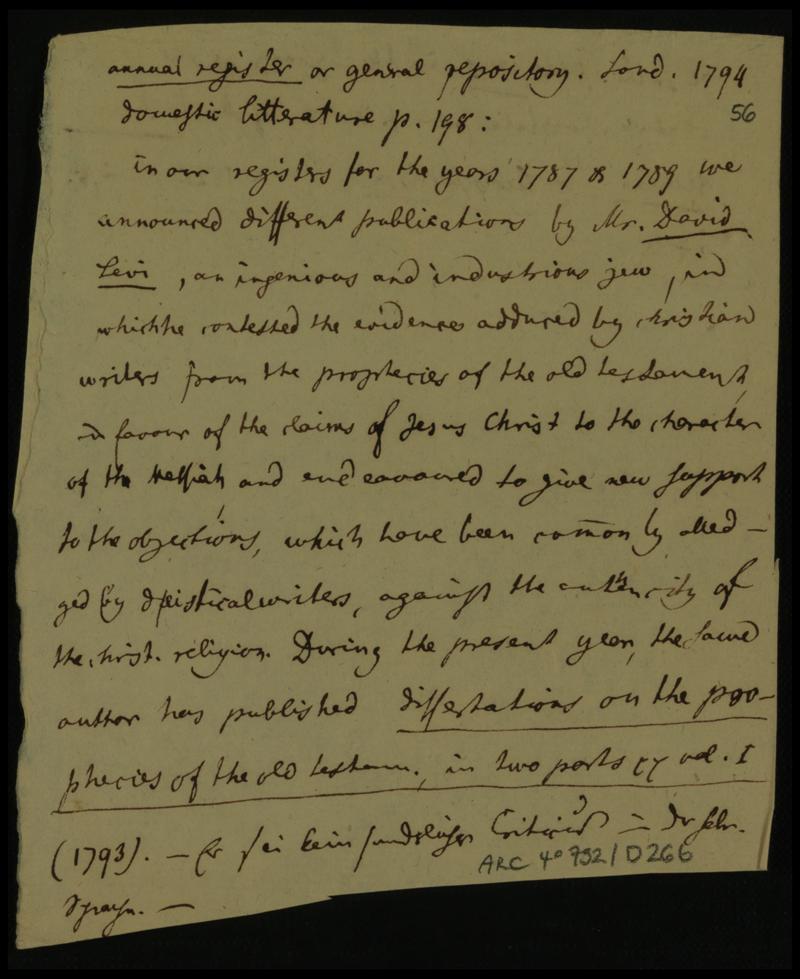 annual register or general repository. Lond. 1794
56
domestic litterature p. 198:
in our registers for the years 1787 & 1789 we
announced different publications by Mr. David
Levi, an ingenious and industrious jew, in
which he contested the evidences adduced by christian
writers from the prophecies of the old testament,
in favour of the claims of Jesus Christ to the character
of the Messiah and endeavoured to give new support
to the objections, which have been com̄only alled-
ged by deistical writers, against the autencity of
the christ. religion. During the present year, the same
author has published dissertations on the pro-
phecies of the old testam., in two parts vol. I
(1793). — Er sei kein Criticus in der hebr.
Sprache. —
ARC 4° 792/D266